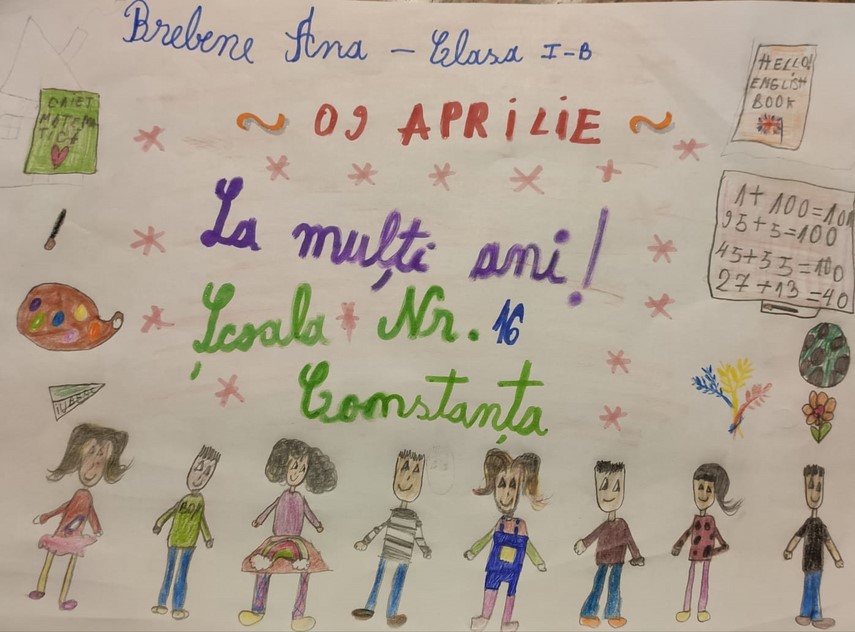 Brebene Ana - Clasa I-B
~ 09 APRILIE ~
La mulți ani!
Școala Nr. 16
Constanța
CAIET
MATEMA
TICĂ
HELLO!
ENGLISH
BOOK
1+100=101
95+5=100
45+55=100
27+13=40